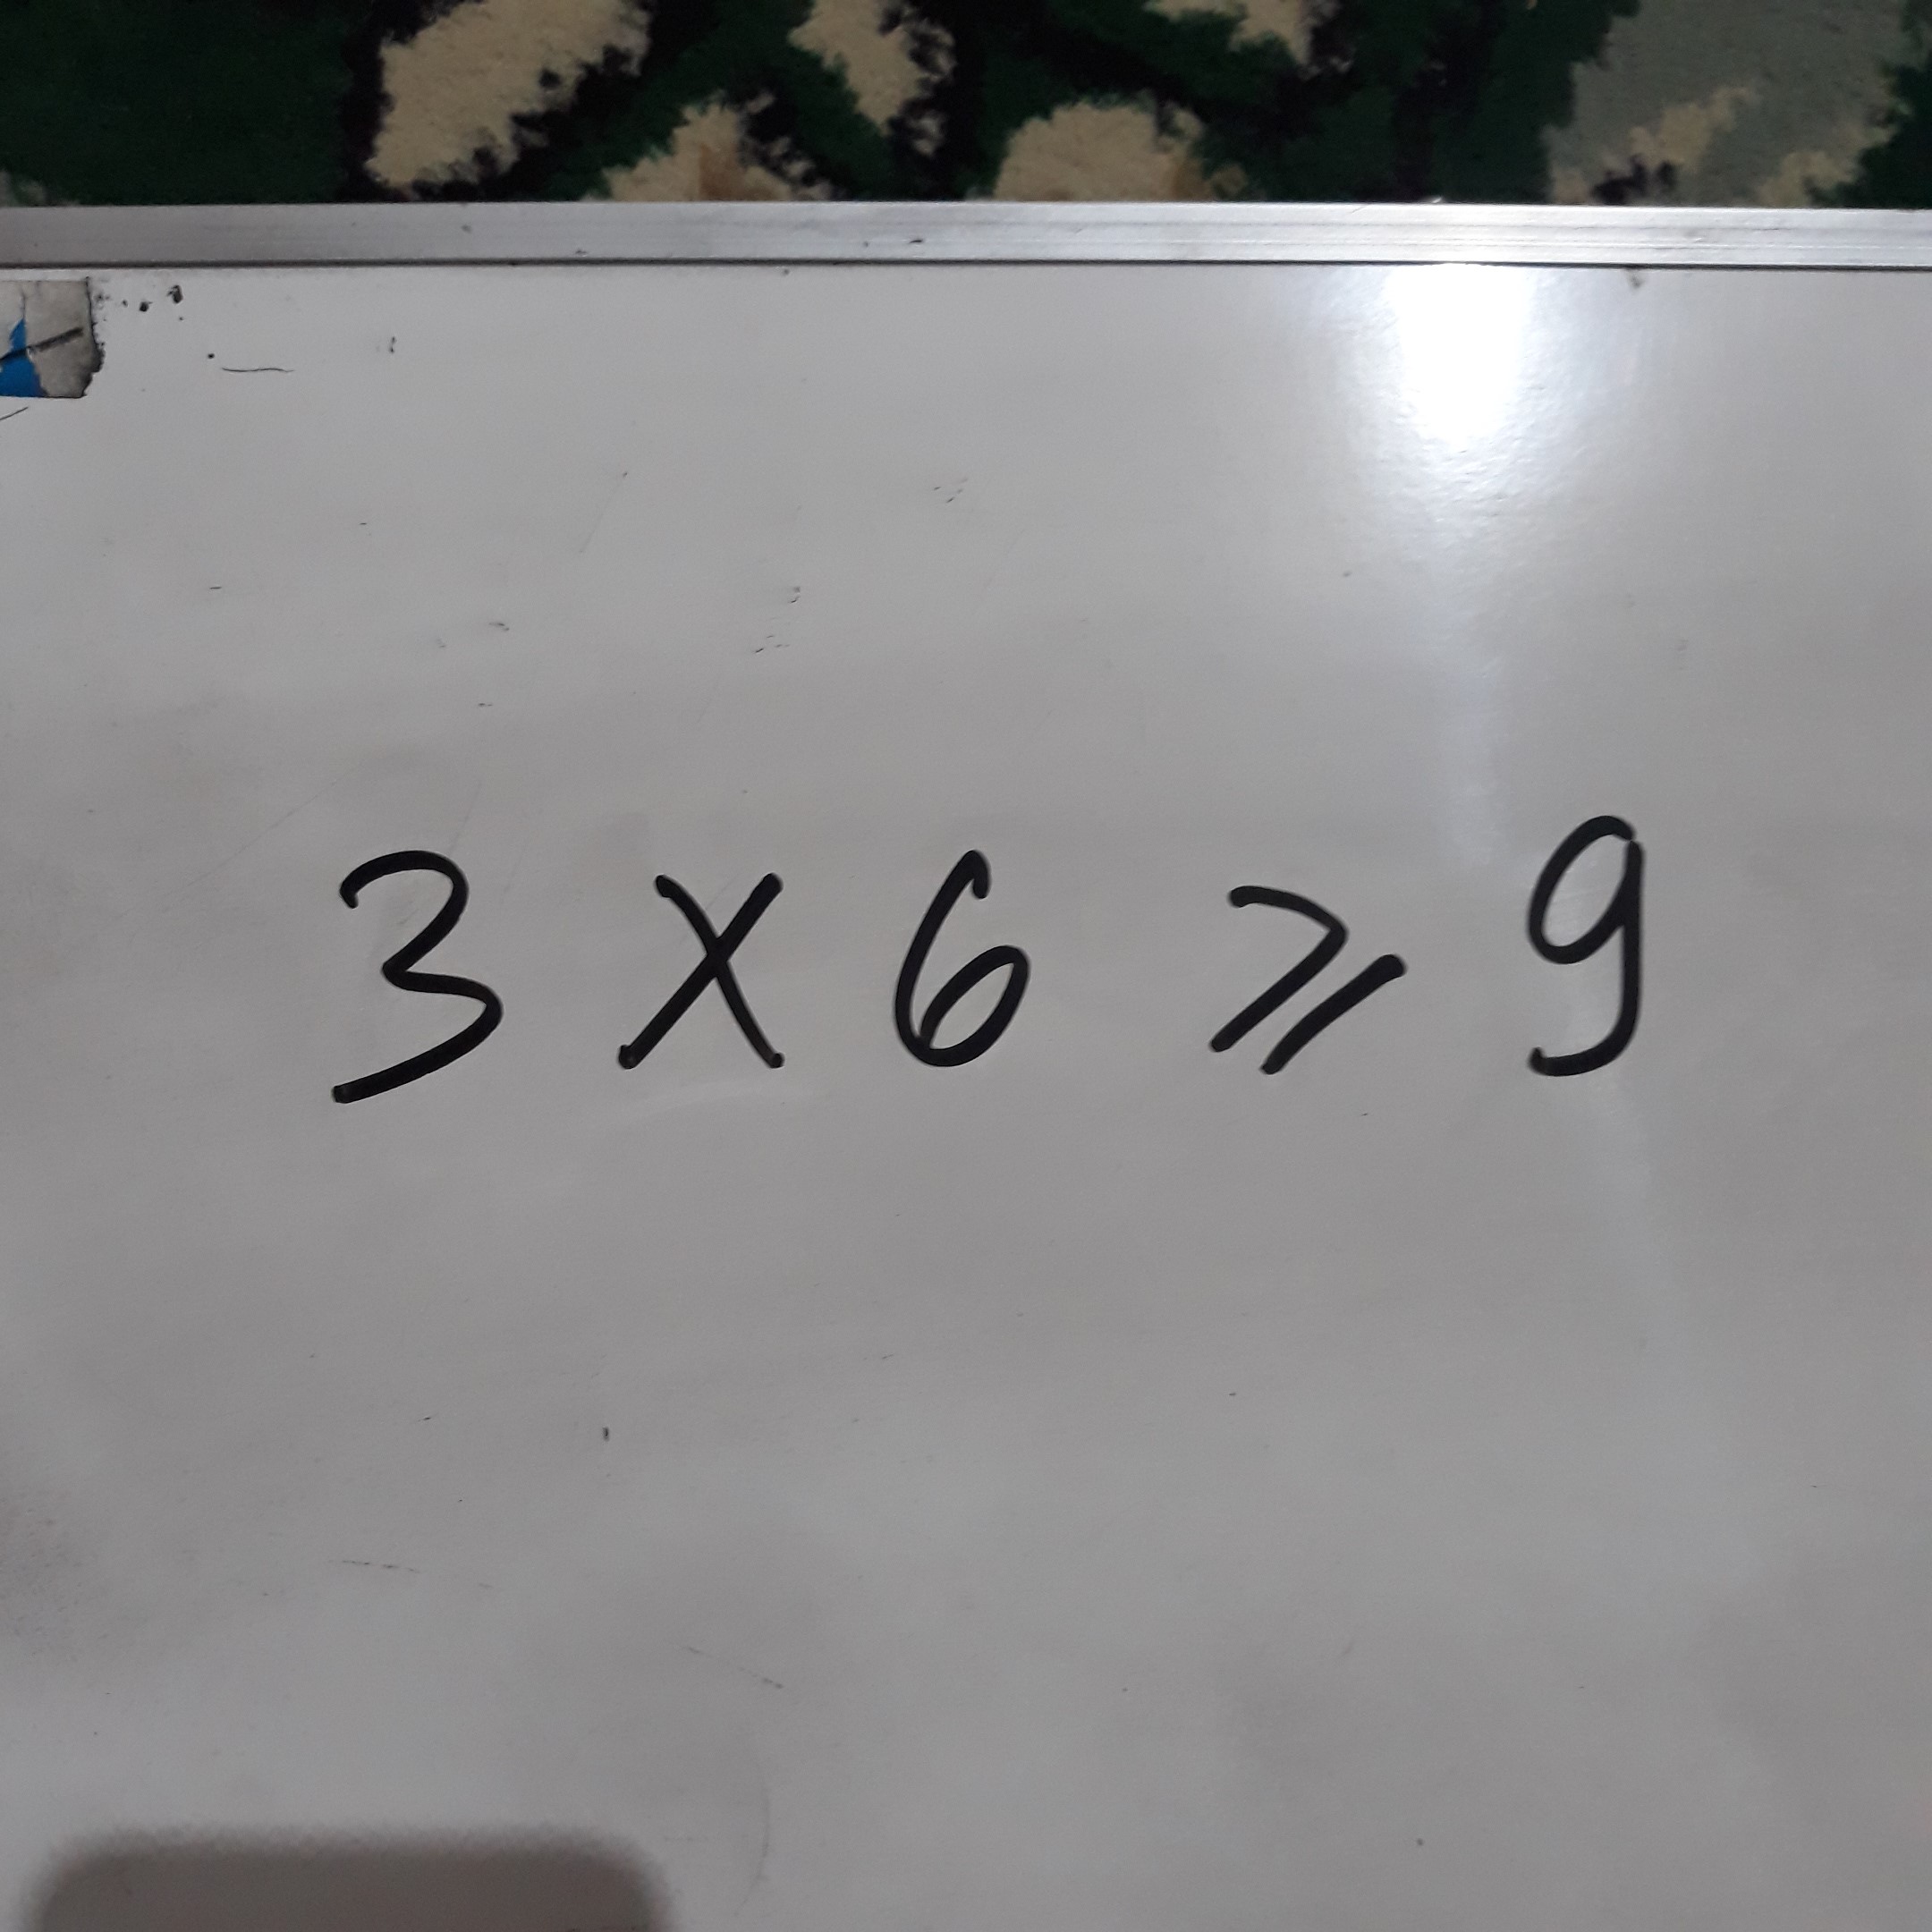 3 × 6 ⩾ 9